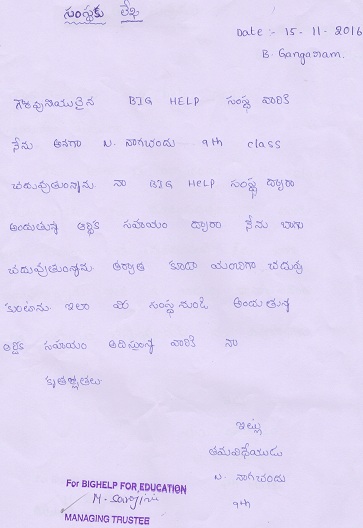 సంస్థకు లేఖ
Date :- 15-11-2016
B. Gangaram.
గౌరవనీయులైన BIG HELP సంస్థ వారికి
నేను అనగా N. నాగచందు 9th class
చదువుతున్నాను. నా BIG HELP సంస్థ ద్వారా
అందుతున్న ఆర్థిక సహాయం ద్వారా నేను బాగా
చదువుతున్నాను. తర్వాత కూడా మంచిగా చదువు
కుంటాను. ఇలా మీ సంస్థ నుండి అందుతున్న
ఆర్థిక సహాయం అందిస్తున్న వారికి నా
కృతజ్ఞతలు.
ఇట్లు
తమవిధేయుడు
N. నాగచందు
9th
For BIGHELP FOR EDUCATION
MANAGING TRUSTEE